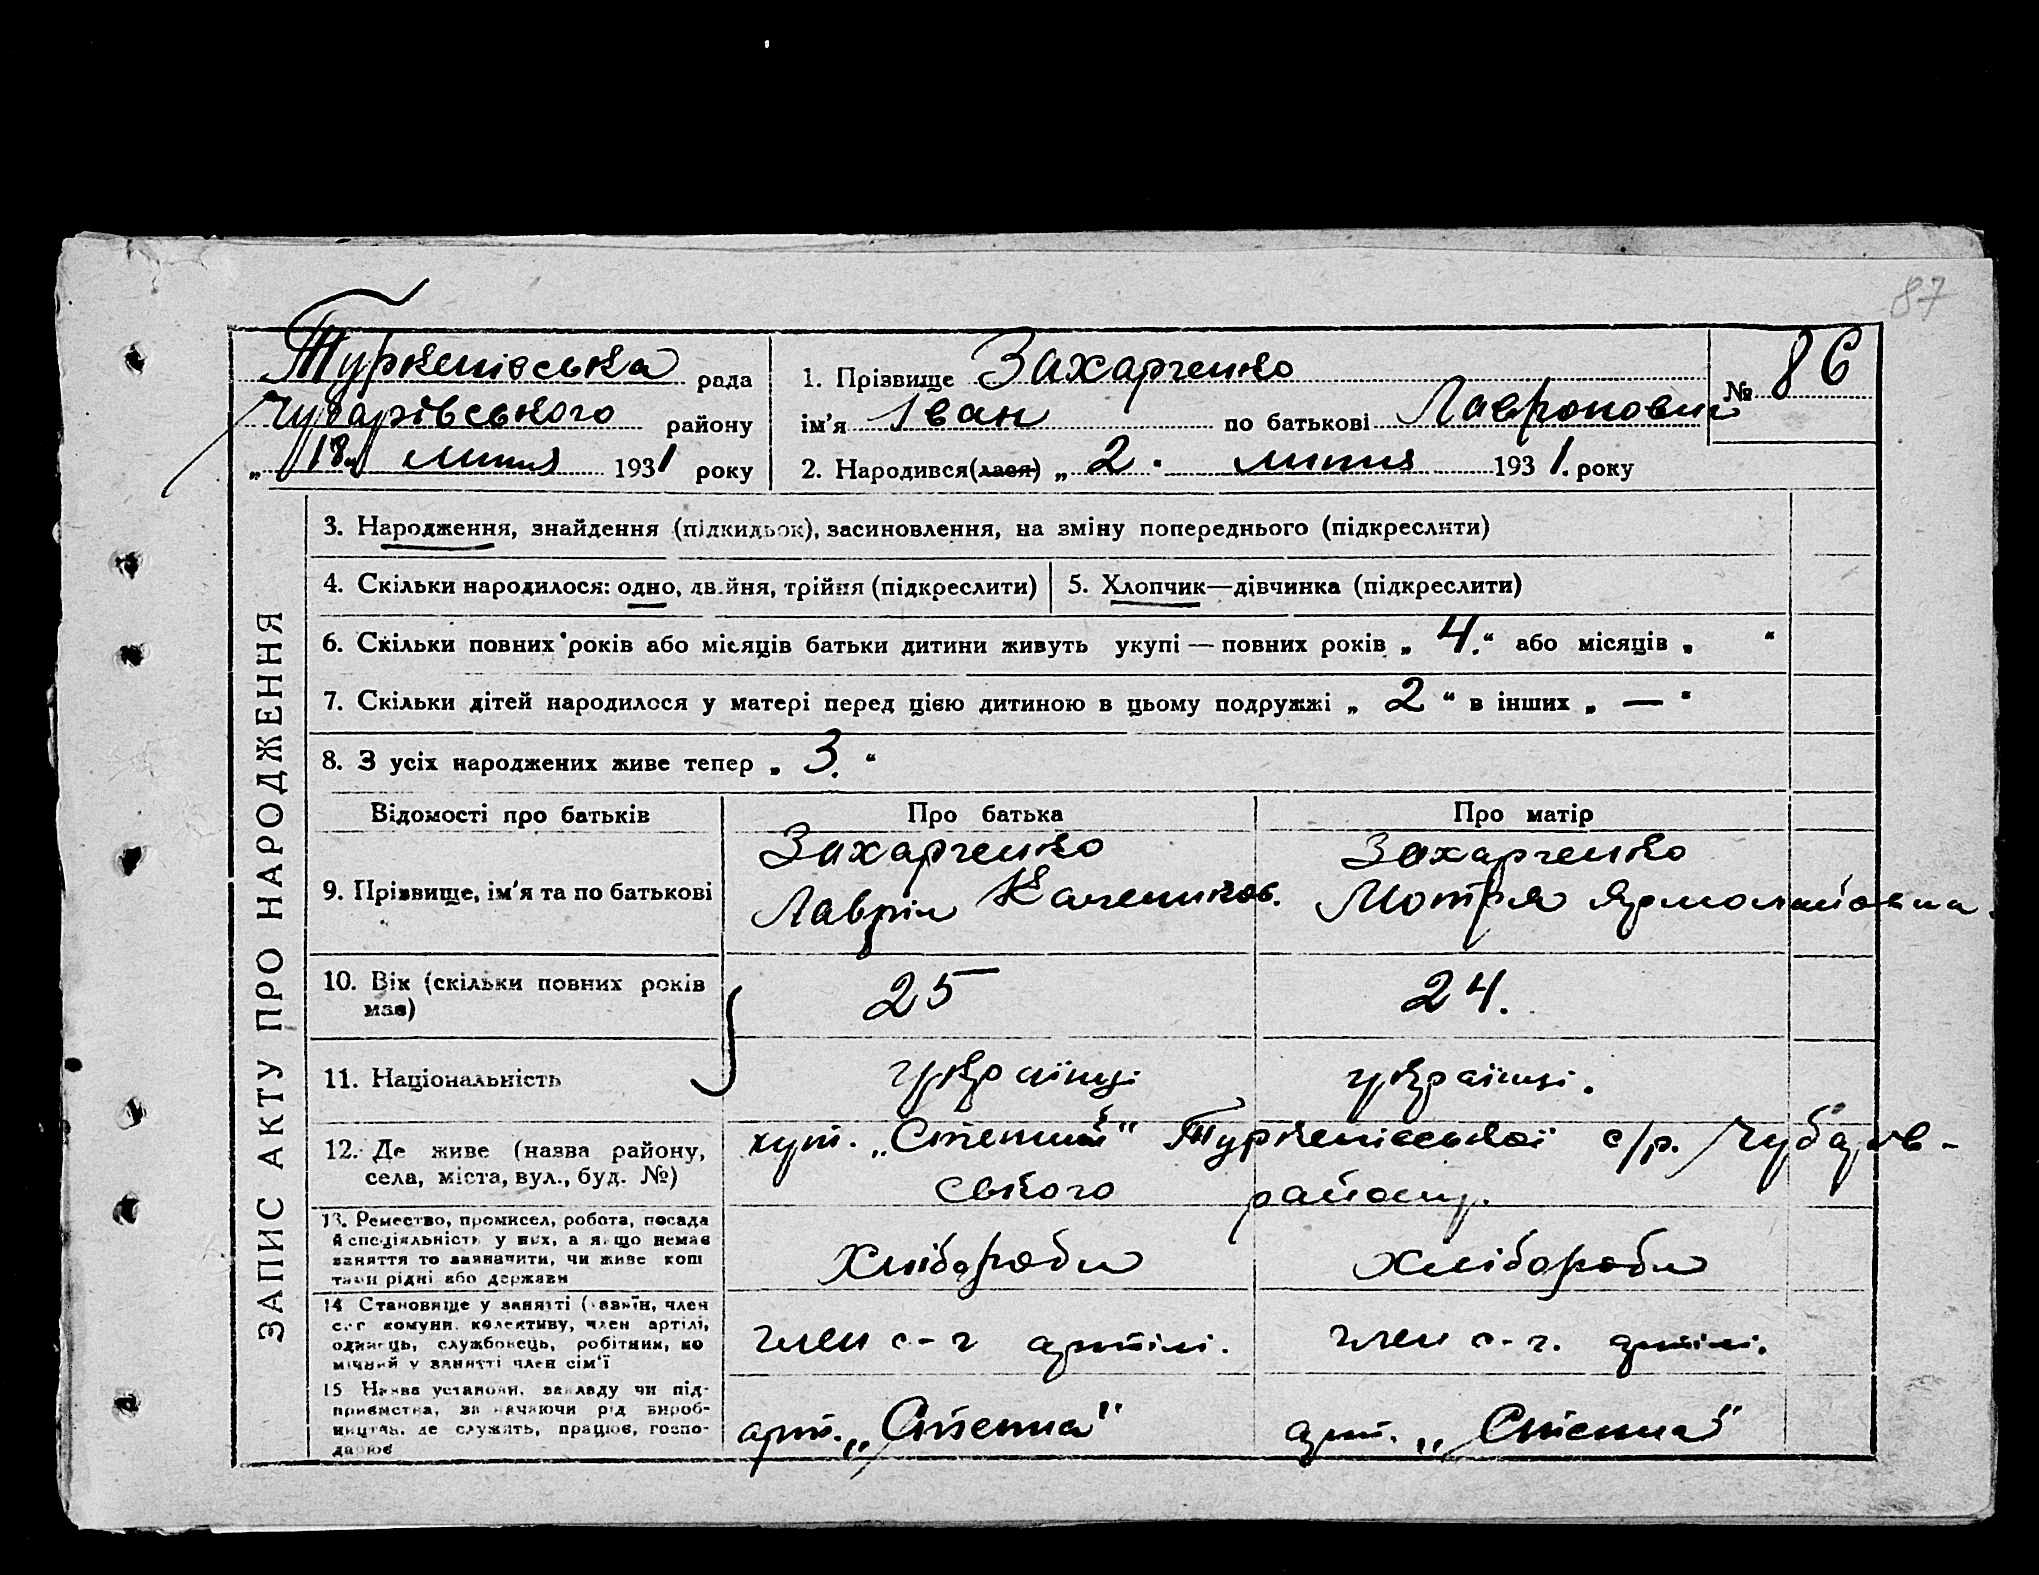 87
Туркенівська рада
Чубарівського району
„18“ липня 1931 року
1. Прізвище Захарченко
ім'я Іван по батькові Лавронович
№ 86
2. Народився(лася) „2. липня 1931. року
ЗАПИС АКТУ ПРО НАРОДЖЕННЯ
3. Народження, знайдення (підкидьок), засиновлення, на зміну попереднього (підкреслити)
4. Скільки народилося: одно, двійня, трійня (підкреслити)
5. Хлопчик—дівчинка (підкреслити)
6. Скільки повних років або місяців батьки дитини живуть укупі — повних років „4.“ або місяців „ “
7. Скільки дітей народилося у матері перед цією дитиною в цьому подружжі „2“ в інших „—“
8. З усіх народжених живе тепер „3.“
Відомості про батьків Про батька Про матір
9. Прізвище, ім'я та по батькові
Захарченко
Лаврін
Захарченко
Мотря Ярмолаївна.
10. Вік (скільки повних років
має)
25
24.
11. Національність
українці
українці.
12. Де живе (назва району,
села, міста, вул., буд. №)
хут. „Степний“ Туркенівської с/р. Чубарів-
ського району.
13. Ремество, промисел, робота, посада
й спеціяльність у них, а якщо немає
заняття то зазначити, чи живе кош
тами рідні або держави
Хлібороби
Хлібороби
14 Становище у занятті (хазяїн, член
с.-г комуни, колективу, член артілі,
одинець, службовець, робітник, по
мічний у занятті член сім'ї
член с-г артілі.
член с-г. артілі.
15 Назва установи, закладу чи під-
приємства, зазначаючи рід вироб-
ництва, де служить, працює, госпо-
дарює
арт. „Степна“
арт. „Степна“